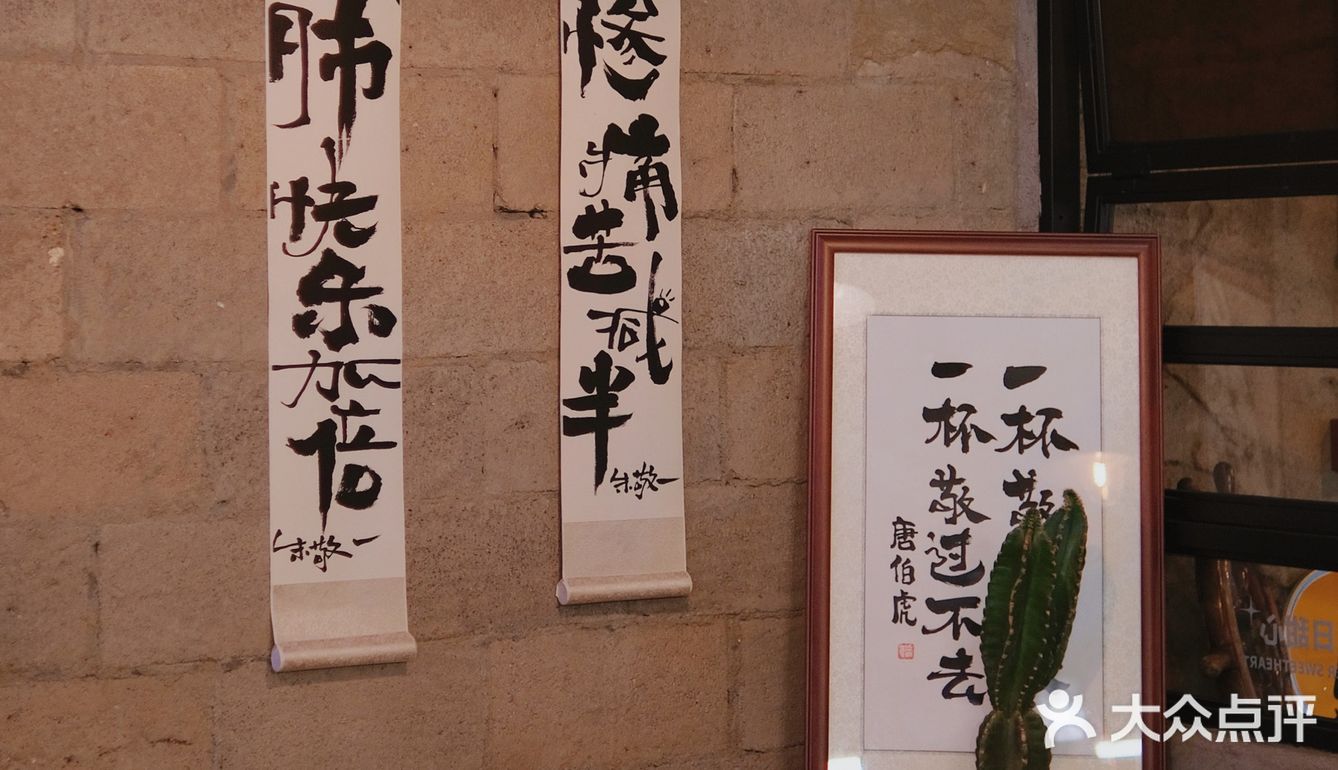 肺快乐加倍
朱敬一
惨痛苦减半
朱敬一
一杯敬
一杯敬过不去
唐伯虎
日甜心
SWEETHEART
大众点评